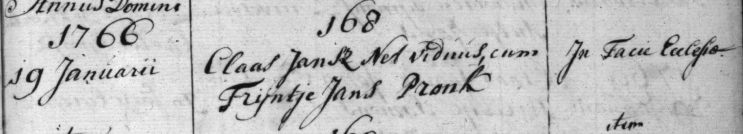 Annus Domini
1766
19 Januarii
168
Claas Jansz Nel viduus, cum
Trijntje Jans Pronk
In Facie Ecclesiæ
item